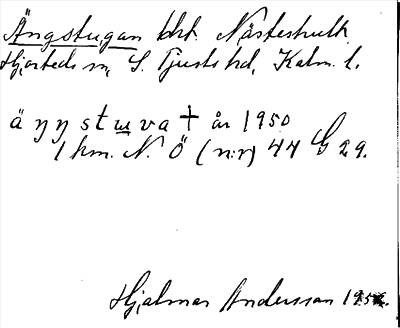 Ängstugan bht. Nästeshult
Hjorteds sn, S. Tjusts hd, Kalm. l.
ä ŋ ŋ s t u v a + år 1950
1 km. N. Ö (n:r) 44 G 29.
Hjalmar Andersson